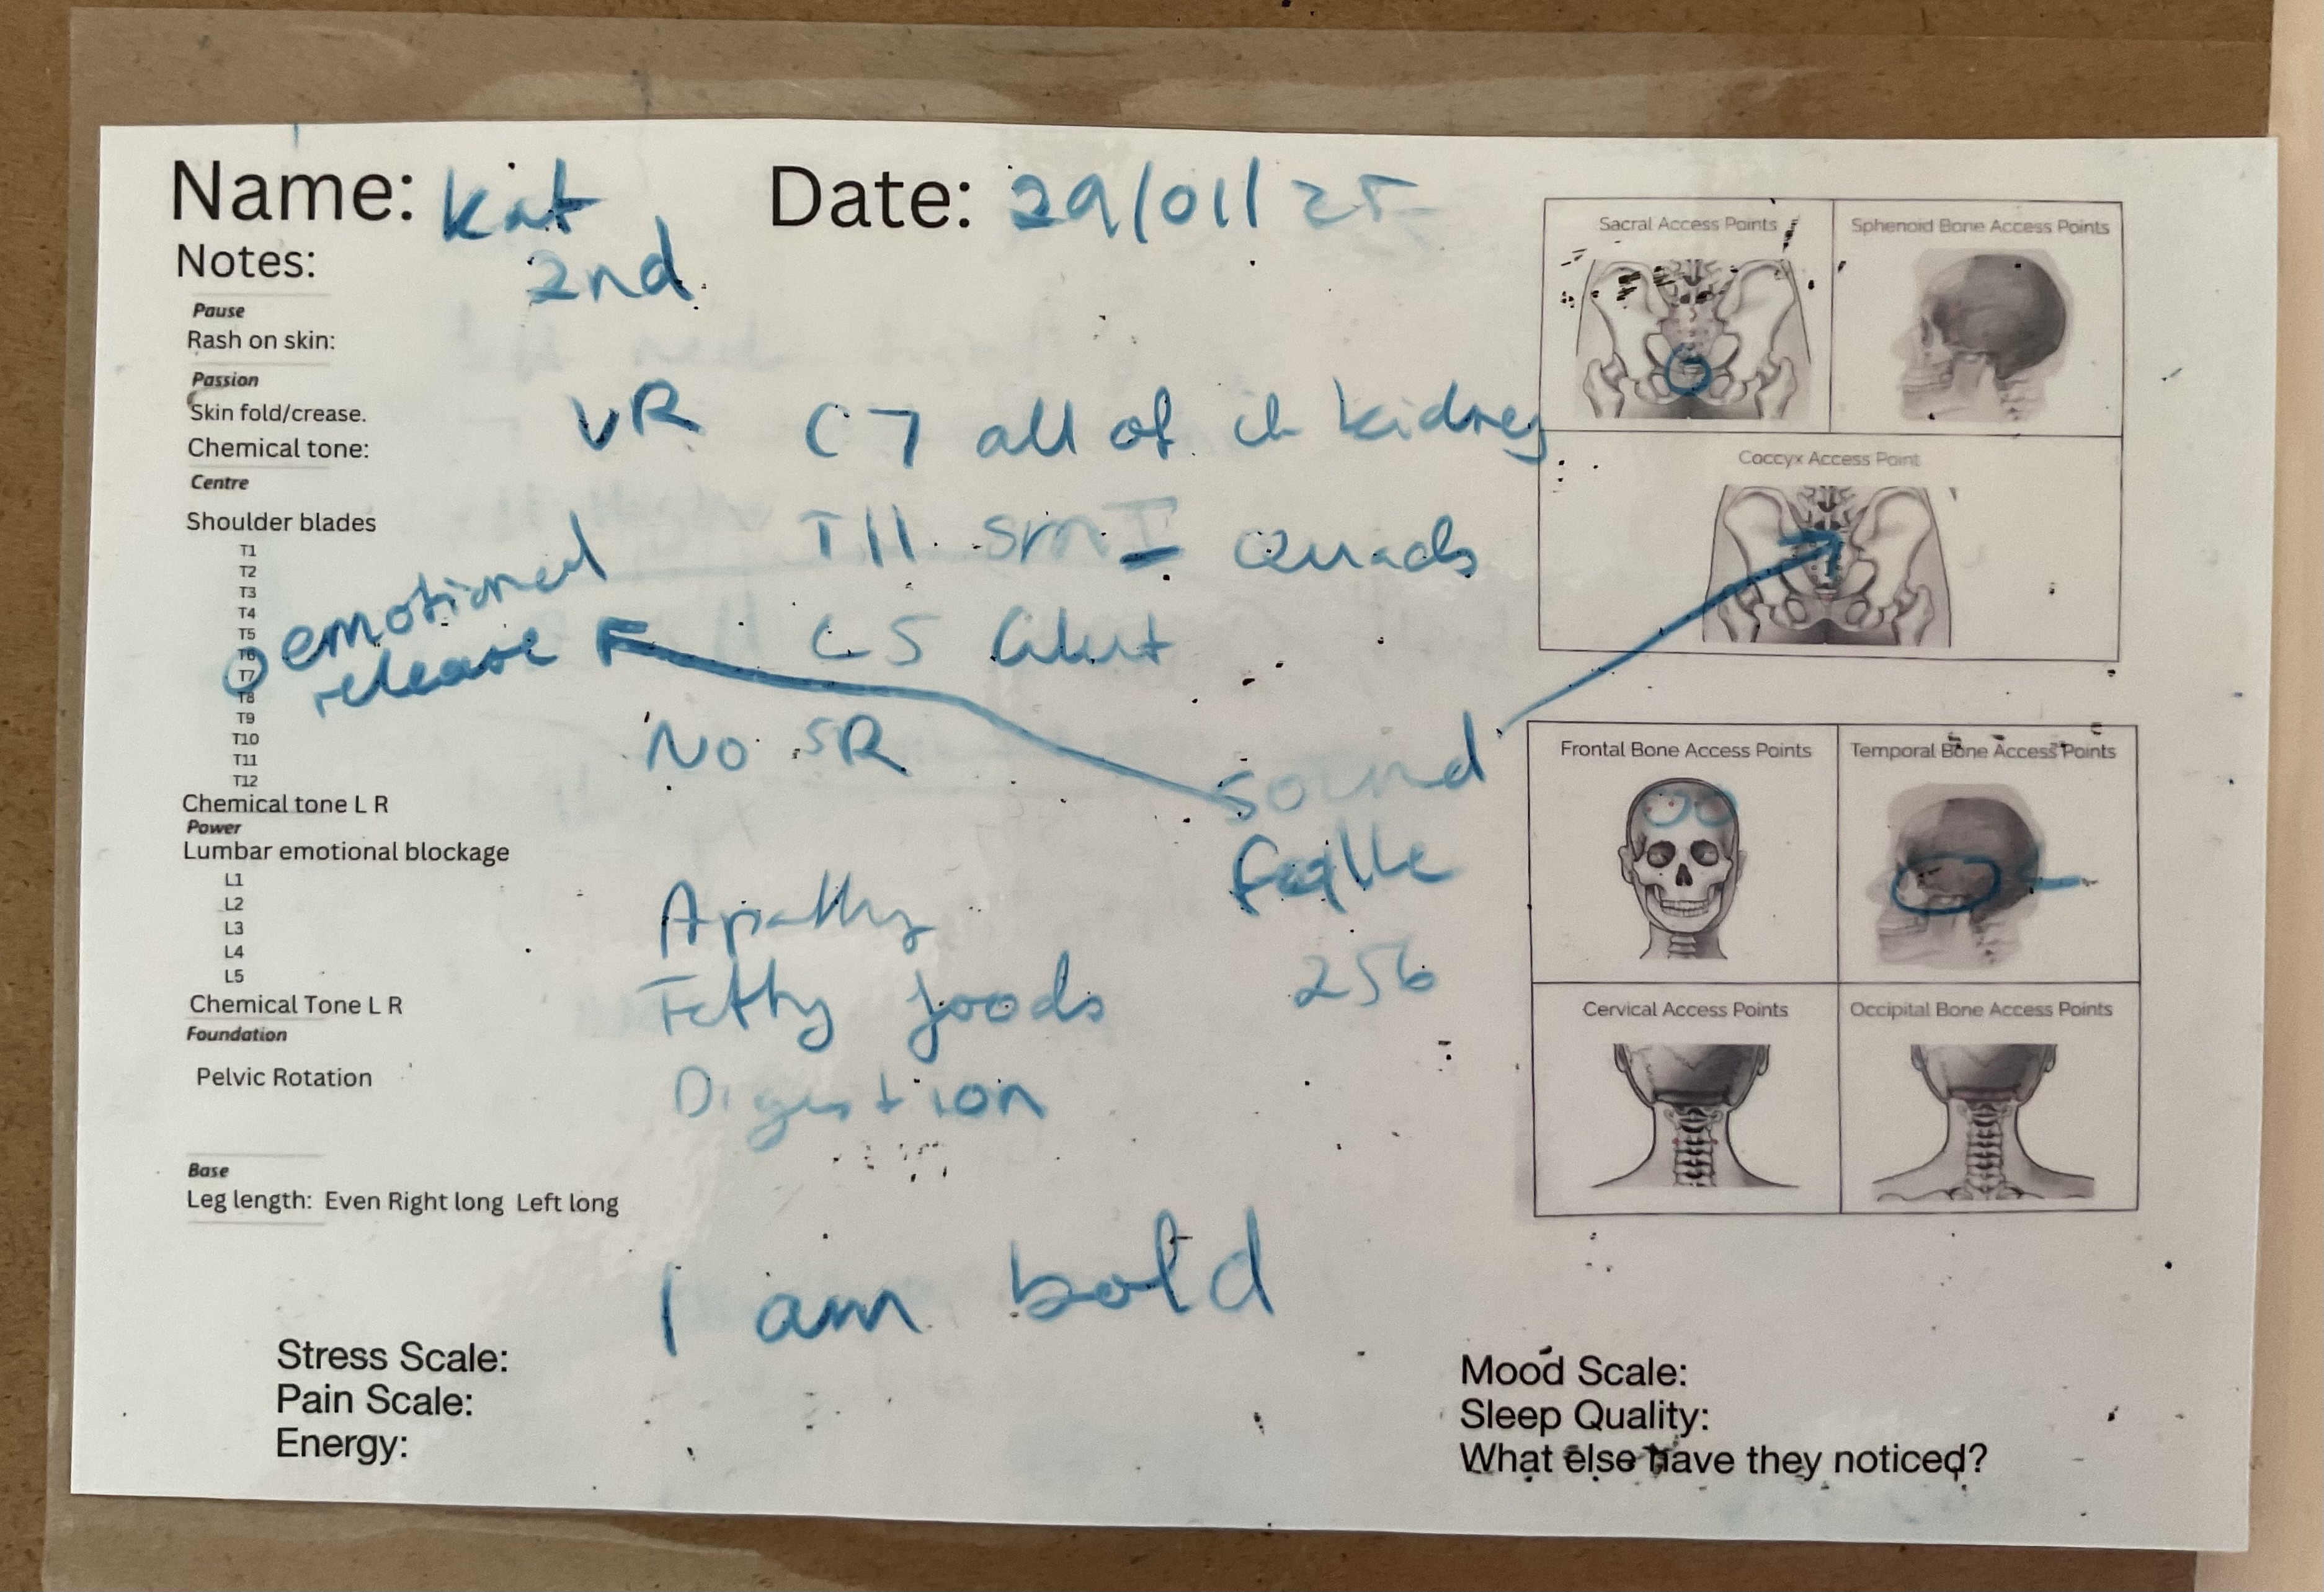 Name: Kat Date: 29/01/25
Notes: 2nd
Pause
Rash on skin:
Passion
Skin fold/crease.
Chemical tone:
VR C7 all of ch kidney
Centre
Shoulder blades
T11 SmI Quads
T1
T2
T3
T4
T5
T6
T7
T8
T9
T10
T11
T12
emotional
release
C5 Glut
No SR
sound
256
Chemical tone L R
Power
Lumbar emotional blockage
L1
L2
L3
L4
L5
Apathy
Fatty foods
Digestion
Chemical Tone L R
Foundation
Pelvic Rotation
Base
Leg length: Even Right long Left long
I am bold
Stress Scale:
Pain Scale:
Energy:
Sacral Access Points
Sphenoid Bone Access Points
Coccyx Access Point
Frontal Bone Access Points
Temporal Bone Access Points
Cervical Access Points
Occipital Bone Access Points
Mood Scale:
Sleep Quality:
What else have they noticed?